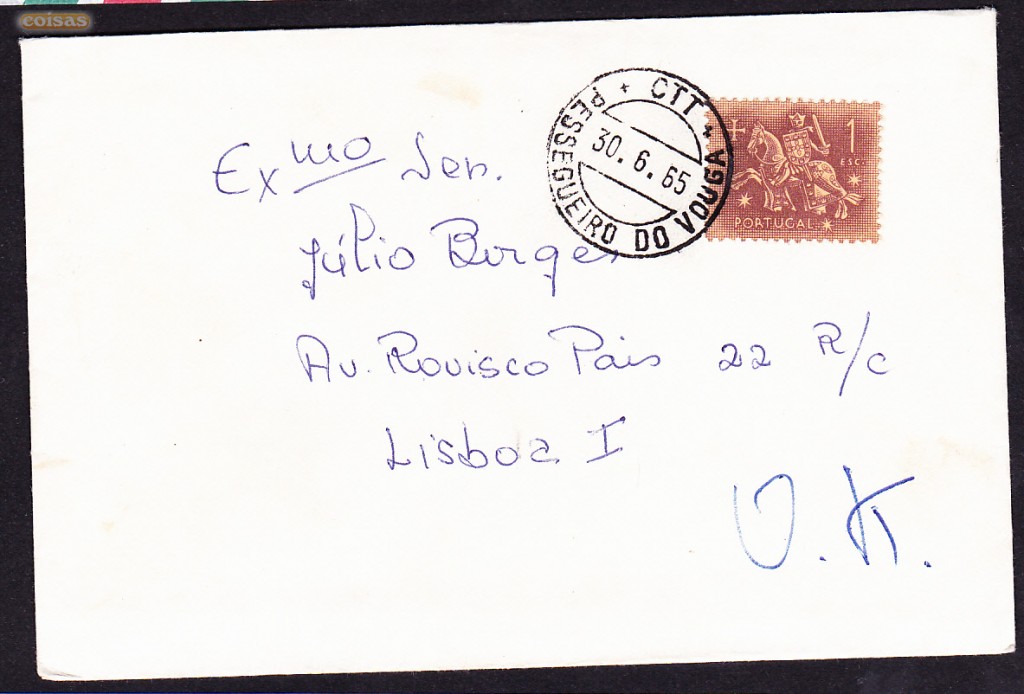 coisas
CTT
PESSEGUEIRO DO VOUGA
30.6.65
1
ESC.
PORTUGAL
Exmo Sen.
Júlio Borges
Av. Rovisco Pais 22 R/c
Lisboa I
O.K.